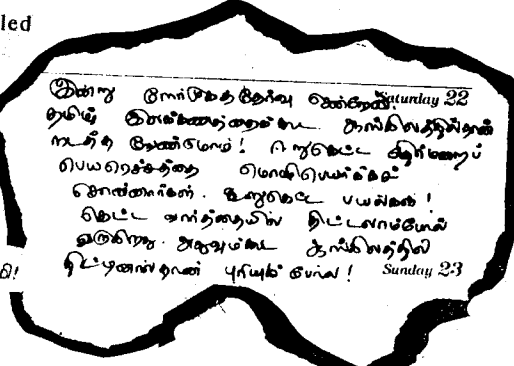 led
இன்று நேர்முகத்தேர்வு சென்றேன்! Saturday 22
தமிழ் இலக்கணத்தைக்கூட ஆங்கிலத்தில்தான்
நடத்த வேண்டுமாம்! ஈறுகெட்ட எதிர்மறைப்
பெயரெச்சத்தை மொழிபெயர்க்கச்
சொன்னார்கள். ஈறுகெட்ட பயல்கள்!
கெட்ட வார்த்தையில் திட்டலாம்போல்
வருகிறது. அதுவும்கூட ஆங்கிலத்தில்
திட்டினால்தான் புரியும் போல! Sunday 23